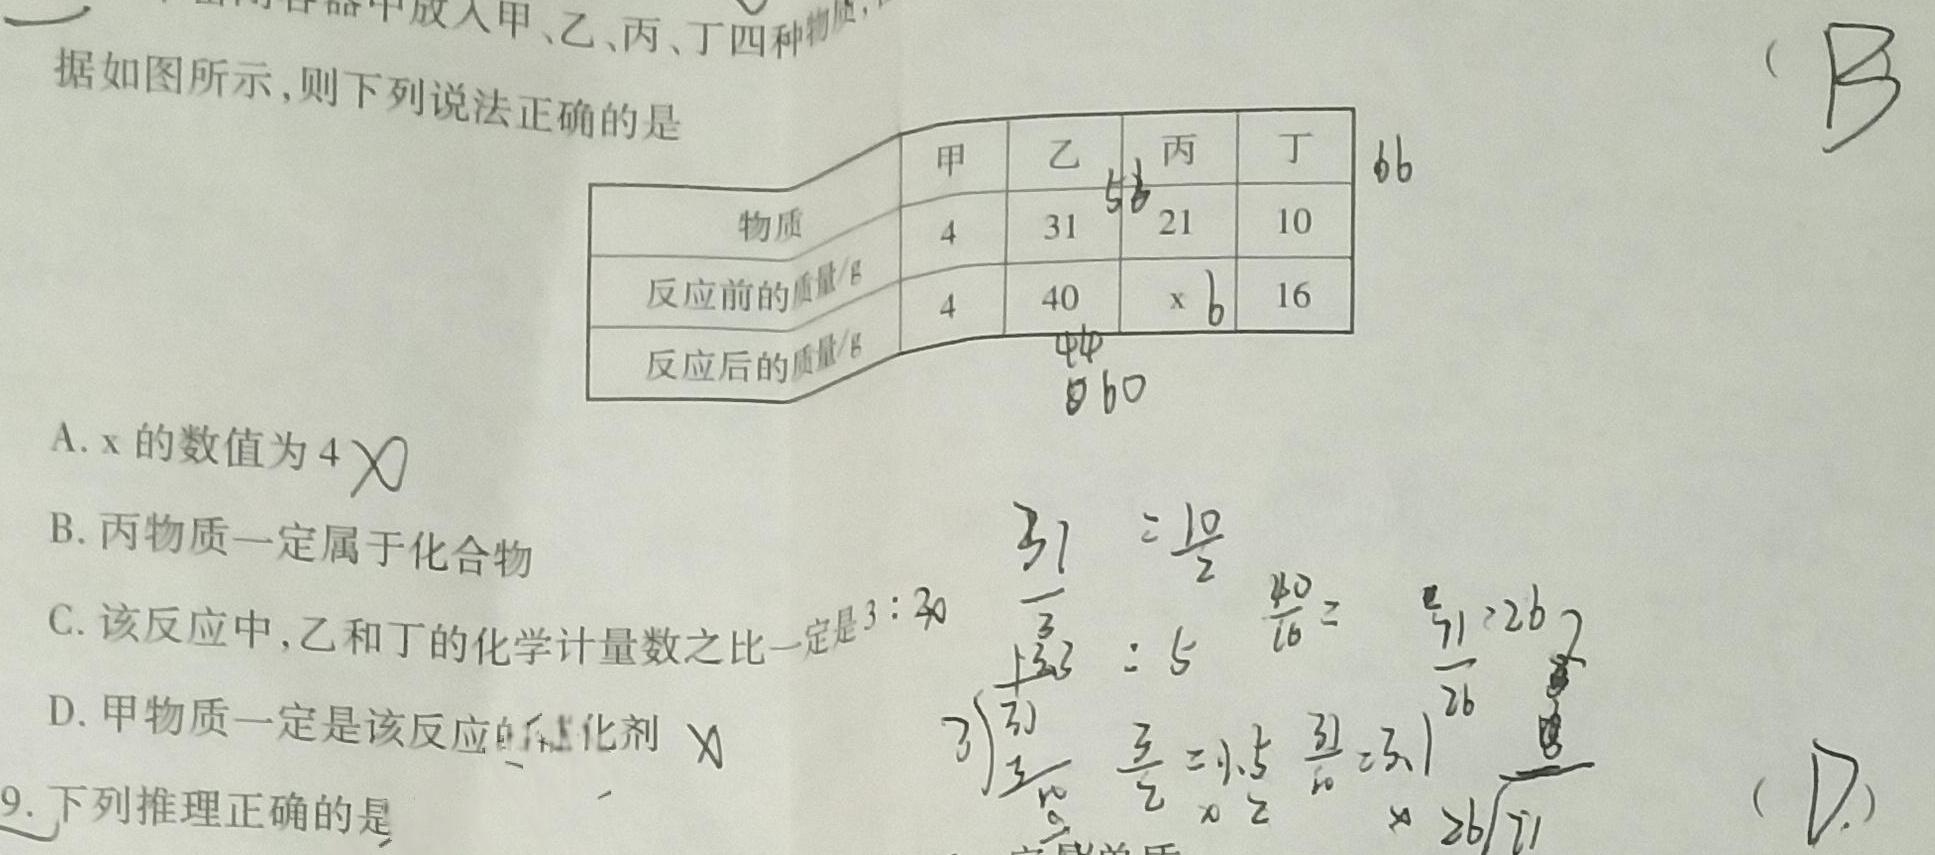 容器中放入甲、乙、丙、丁四种物质,
据如图所示,则下列说法正确的是
( B
物质 甲 乙 丙 丁
66
56
反应前的质量/g 4 31 21 10
反应后的质量/g 4 40 x 6 16
44
60
A. x 的数值为 4 ×
B. 丙物质一定属于化合物
C. 该反应中,乙和丁的化学计量数之比一定是 3:
D. 甲物质一定是该反应的催化剂 ×
31/3 = 10/2
= 5
40/16 =
3/2 = 1.5
× 2
31/10 = 3.1
×
9. 下列推理正确的是
( D. )